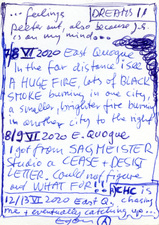 ... feelings DREAMS !!
also because
is on my mind...
7/8 VI 2020 East Quogue
In the far distance I see
A HUGE FIRE, lots of BLACK
SMOKE burning in one city,
a smaller, brighter fire burning
in another city to the right
8/9 VI 2020 E. Quogue
I got from SAGMEISTER
Studio a CEASE + DESIST
LETTER. Could not figure
out WHAT FOR!! CHC is
12/13 VI 2020 East Q. chasing
me + eventually catching up...